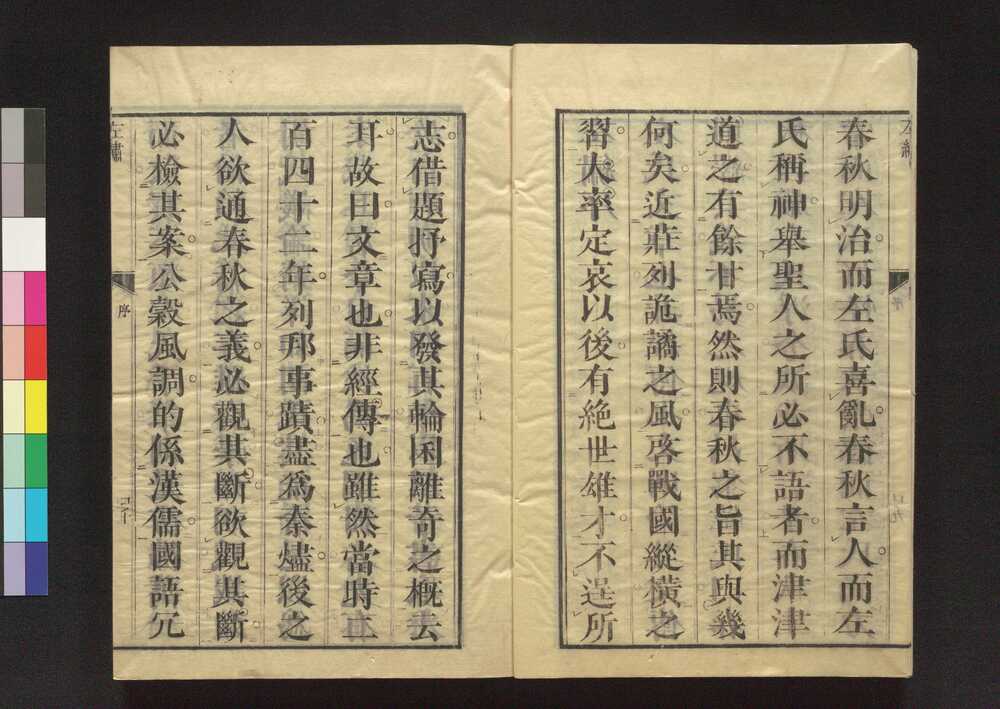 春秋明治而左氏喜亂春秋言人而左
氏稱神舉聖人之所必不語者而津津
道之有餘甘焉然則春秋之旨其與幾
何矣近莊列詭譎之風啓戰國縱橫之
習大率定哀以後有絶世雄才不逞所
志借題抒寫以發其輪囷離奇之概云
耳故曰文章也非經傳也雖然當時二
百四十二年列邦事蹟盡爲秦燼後之
人欲通春秋之義必觀其斷欲觀其斷
必檢其案公穀風調的係漢儒國語冗
左繡
序